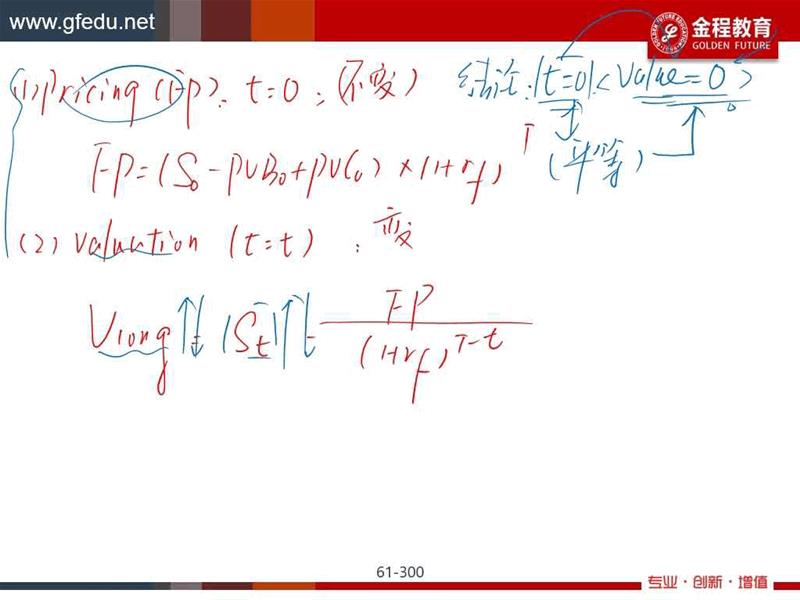 www.gfedu.net
金程教育
GOLDEN FUTURE
(1) pricing (FP): t=0: (不变) 结论: |t=0|<Value=0>
(平等)
FP=(S₀-PVB₀+PVC₀)×(1+rf)ᵀ
(2) valuation (t=t): 变
Vlong↑↓=|St|↑↓- FP
(1+rf)ᵀ⁻ᵗ
61-300
专业·创新·增值